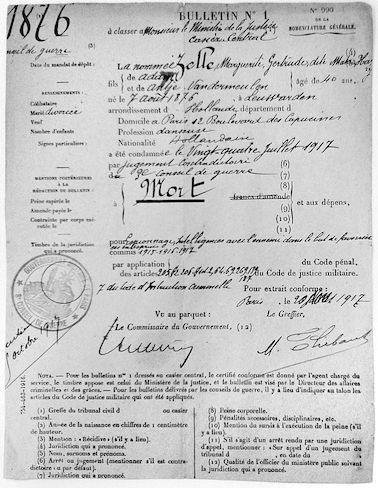 1876
BULLETIN N° 1
N° 990
DE LA
NOMENCLATURE GÉNÉRALE.
à classer à Monsieur le Ministre de la Justice
Casier Central
de guerre
Date du mandat de dépôt :
La nommée Zelle Marguerite, Gertrude, dite Mata Hari
de Adam
et de Antje Van der Meulen âgé de 40 ans
RENSEIGNEMENTS :
né le 7 août 1876 à Leeuwarden
Célibataire
arrondissement d Hollande, département d
Marié divorcée
Domicile à Paris 12 Boulevard des Capucines
Veuf
Nombre d'enfants
Profession danseuse
Signes particuliers :
Nationalité Hollandaise
a été condamnée le Vingt quatre juillet 1917
par jugement contradictoire (6)
MENTIONS POSTÉRIEURES
À LA
RÉDACTION DU BULLETIN :
du 3e Conseil de guerre (7)
à Mort (8)
Peine expirée le
francs d'amende (9)
Amende payée le
(10) et aux dépens,
Contrainte par corps exécutée le
(11)
Timbre de la juridiction
qui a prononcé.
pour espionnage, intelligences avec l'ennemi dans le but de favoriser
ses entreprises
commis 1915-1916-1917
par application : du Code pénal,
des articles du Code de justice militaire.
7 du Code d'Instruction criminelle
Pour extrait conforme :
Paris, le 1917
Vu au parquet :
Le Greffier,
Le Commissaire du Gouvernement, (12)
octobre
M. Thibaut
NOTA. — Pour les bulletins n° 1 dressés au casier central, le certifié conforme est donné par l'agent chargé du
service, le timbre apposé est celui du Ministère de la Justice, et le bulletin est visé par le Directeur des affaires
criminelles et des grâces. — Pour les bulletins délivrés par les conseils de guerre, il y a lieu d'indiquer au talon les
articles du Code de justice militaire qui ont été appliqués.
(1) Greffe du tribunal civil d ou casier
central.
(2) Année de la naissance en chiffres de 1 centimètre
de hauteur.
(3) Mention : «Récidive» (s'il y a lieu).
(4) Juridiction qui a prononcé.
(5) Nom, surnoms et prénoms.
(6) Arrêt ou jugement (mentionner s'il est contradictoire
ou par défaut).
(7) Juridiction qui a prononcé.
(8) Peine corporelle.
(9) Pénalités accessoires, disciplinaires, etc.
(10) Mention du sursis à l'exécution de la peine (s'il
y a lieu).
(11) S'il s'agit d'un arrêt rendu par une juridiction
d'appel, mentionner : «Sur appel d'un jugement du
tribunal d , en date du
(12) Qualité de l'officier du ministère public suivant
la juridiction qui a prononcé.